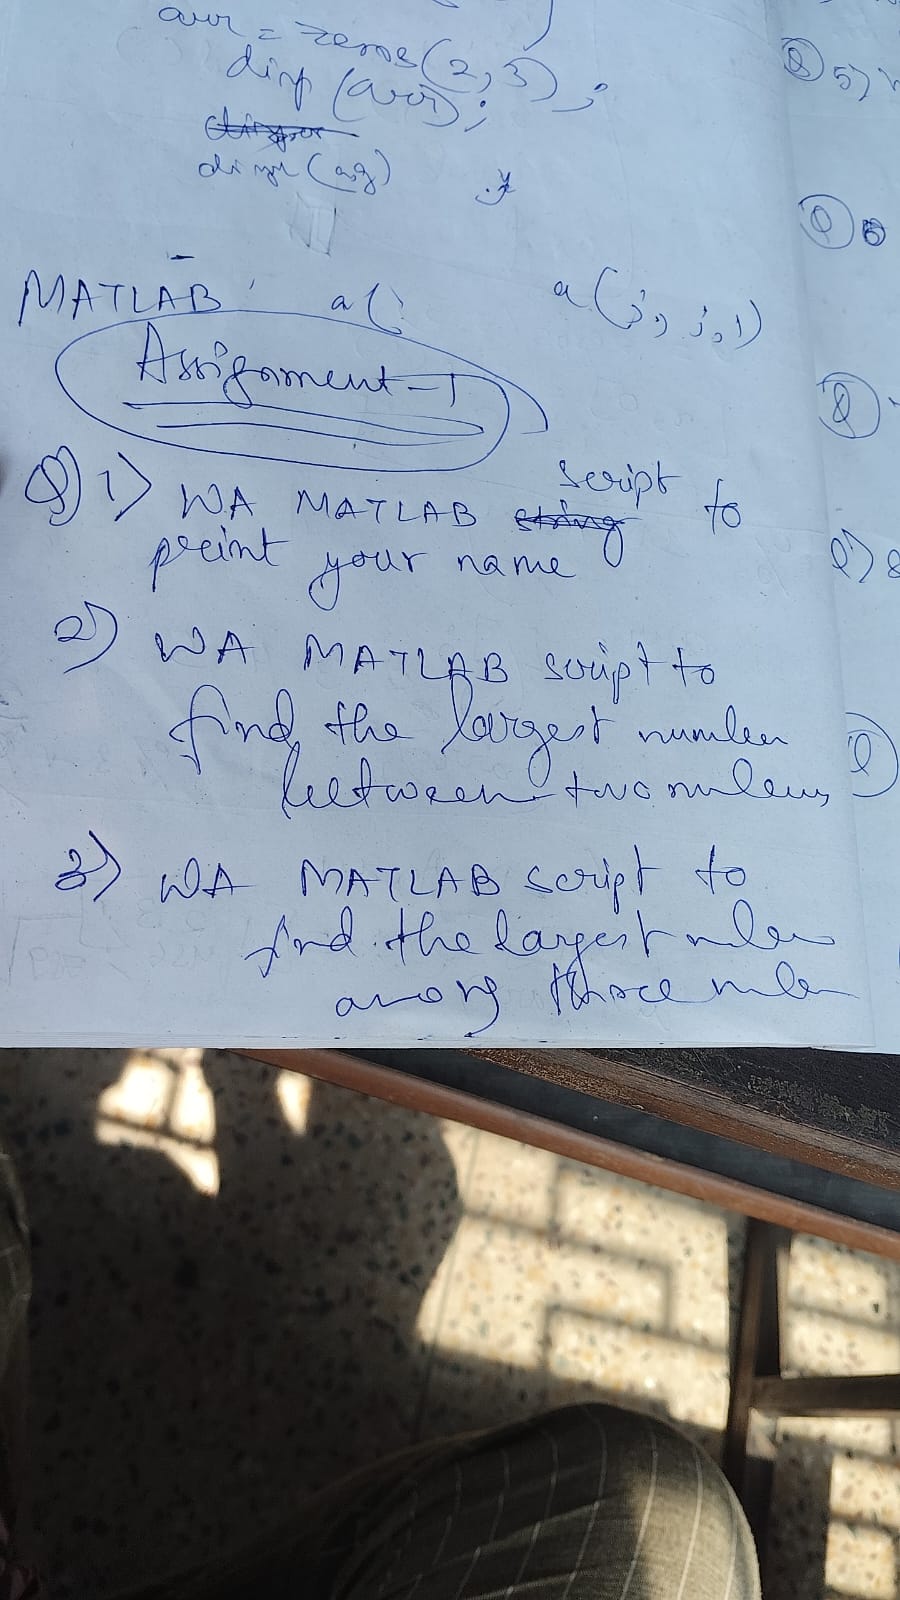 arr = zeros(2,3);
disp(arr);
MATLAB a(
a(j, j, 1)
Assignment-1
Q 1) WA MATLAB script to
print your name
2) WA MATLAB script to
find the largest number
between two
3) WA MATLAB script to
find the largest
among three
Q 5)
Q 6
Q
Q) 8
Q